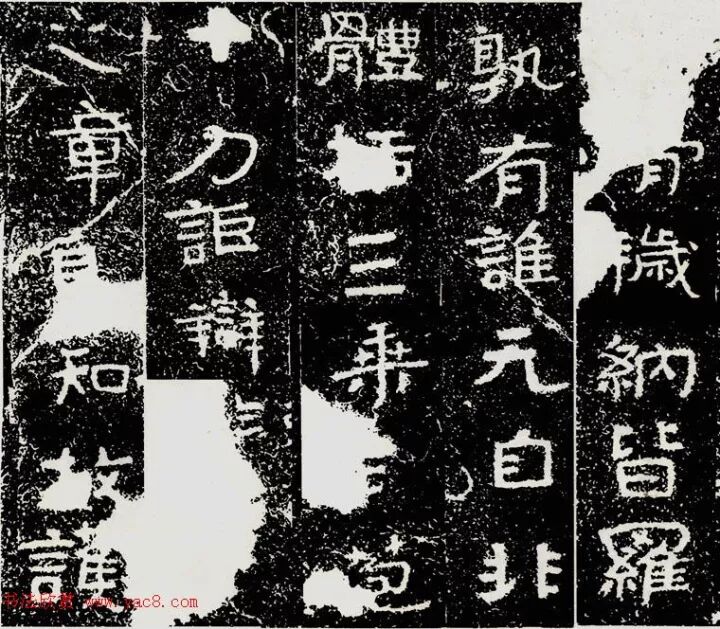 穢納皆羅
孰有誰元自非
體三乘苞
十力詎辯
章知故
书法欣赏 www.yac8.com